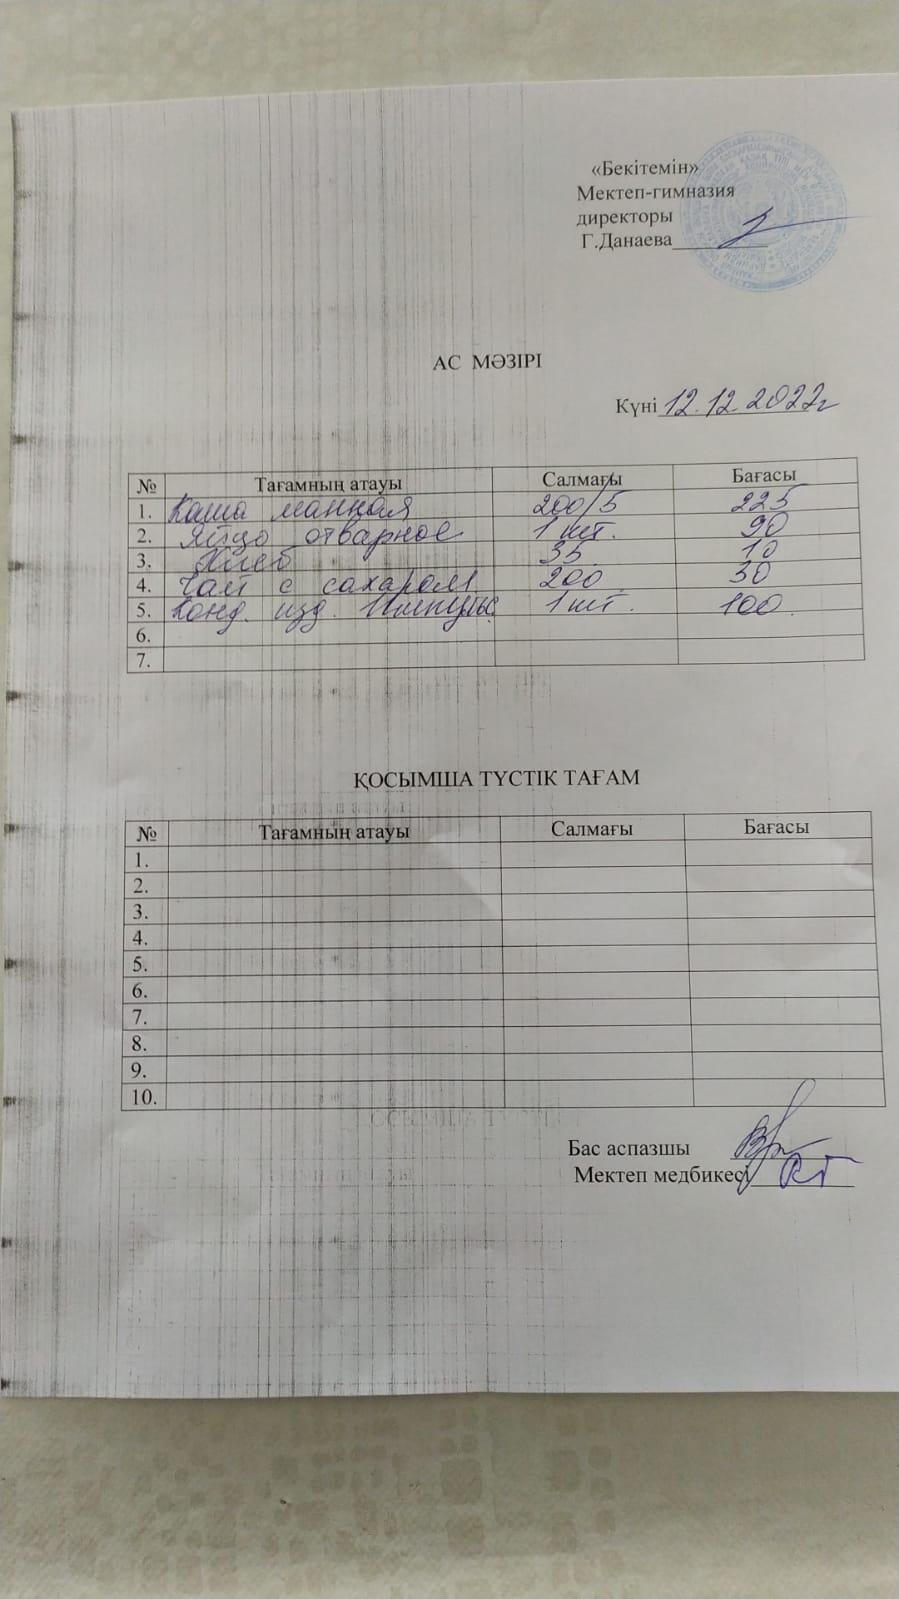 «Бекітемін»
Мектеп-гимназия
директоры
Г.Данаева
АС МӘЗІРІ
Күні 12.12.2022г
№ Тағамның атауы Салмағы Бағасы
1. Каша манная 200/5 225
2. яйцо отварное 1 шт. 90
3. Хлеб 35 10
4. Чай с сахаром 200 30
5. Конд. изд. Импульс 1 шт. 100
6.
7.
ҚОСЫМША ТҮСТІК ТАҒАМ
№ Тағамның атауы Салмағы Бағасы
1.
2.
3.
4.
5.
6.
7.
8.
9.
10.
Бас аспазшы
Мектеп медбикесі